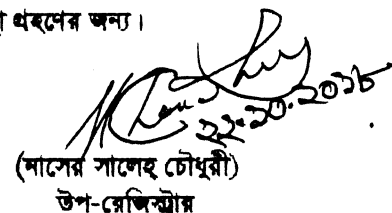 গ্রহণের জন্য।
২২.১০.২০১৮
(নাসের সালেহ চৌধুরী)
উপ-রেজিস্ট্রার